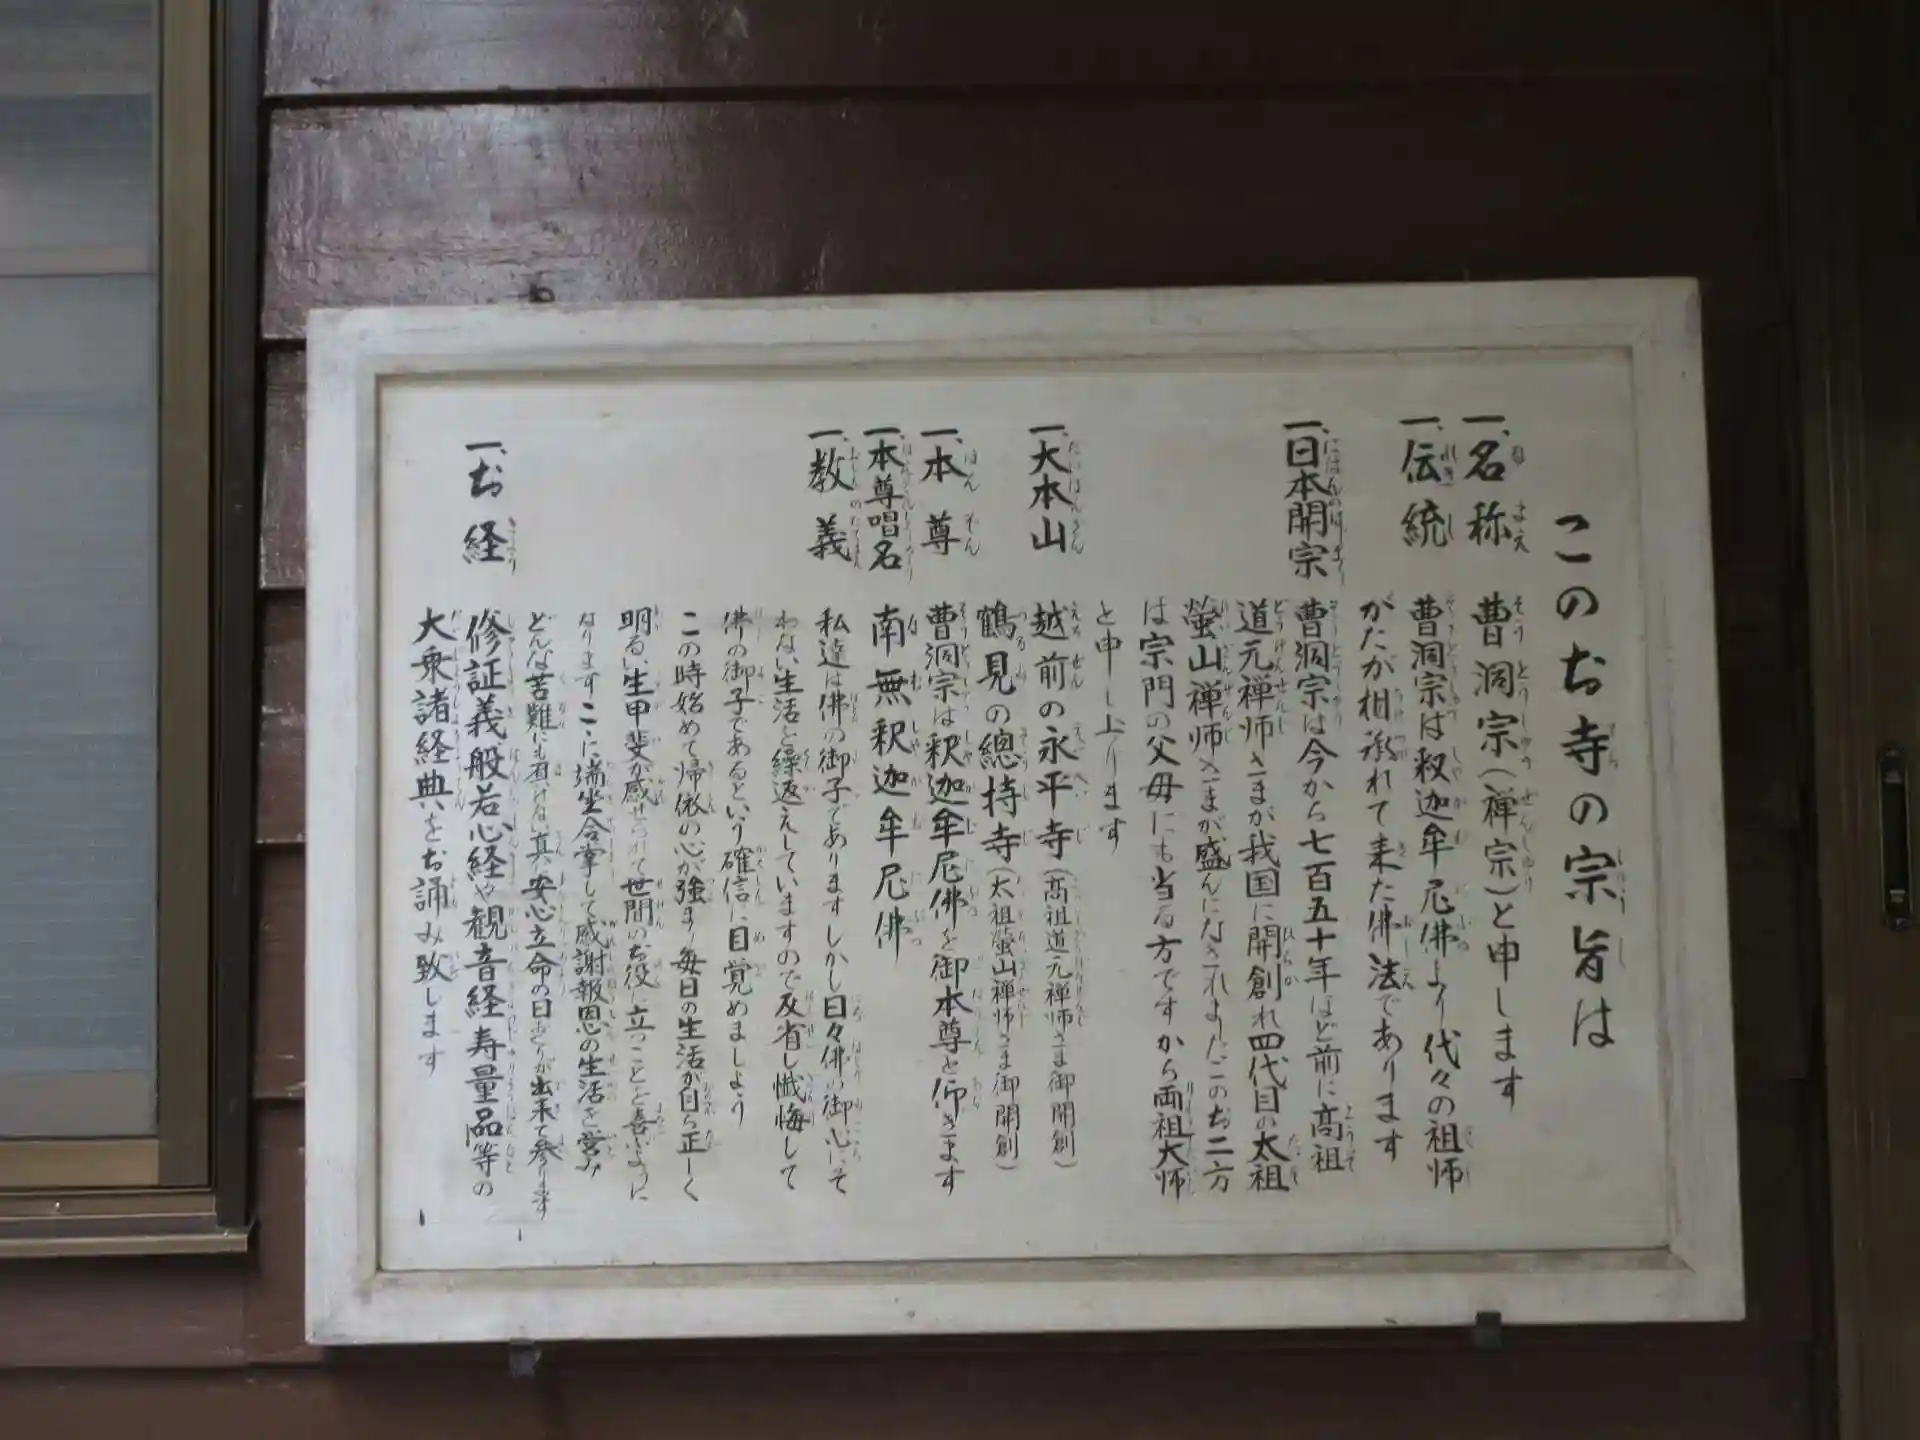 このお寺の宗旨は
一、名称 曹洞宗(禅宗)と申します
一、伝統 曹洞宗は釈迦牟尼佛より代々の祖師
がたが相承れて来た佛法であります
一、日本開宗 曹洞宗は今から七百五十年ほど前に高祖
道元禅師さまが我国に開創れ四代目の太祖
螢山禅師さまが盛んになされましたこのお二方
は宗門の父母にも当る方ですから両祖大師
と申し上ります
一、大本山 越前の永平寺(高祖道元禅師さま御開創)
鶴見の總持寺(太祖螢山禅師さま御開創)
一、本尊 曹洞宗は釈迦牟尼佛を御本尊と仰きます
一、本尊唱名 南無釈迦牟尼佛
一、教義 私達は佛の御子でありますしかし日々佛の御心にそ
わない生活を繰返えしていますので反省し懺悔して
佛の御子であるという確信に目覚めましよう
この時始めて帰依の心が強まり毎日の生活が自ら正しく
明るい生甲斐が感ぜられて世間のお役に立つことを喜ぶように
なりますここに端坐合掌して感謝報恩の生活を営み
どんな苦難にも負けない真の安心立命の日ぐらしが出来て参ります
一、お経 修証義般若心経や観音経寿量品等の
大乗諸経典をお誦み致します